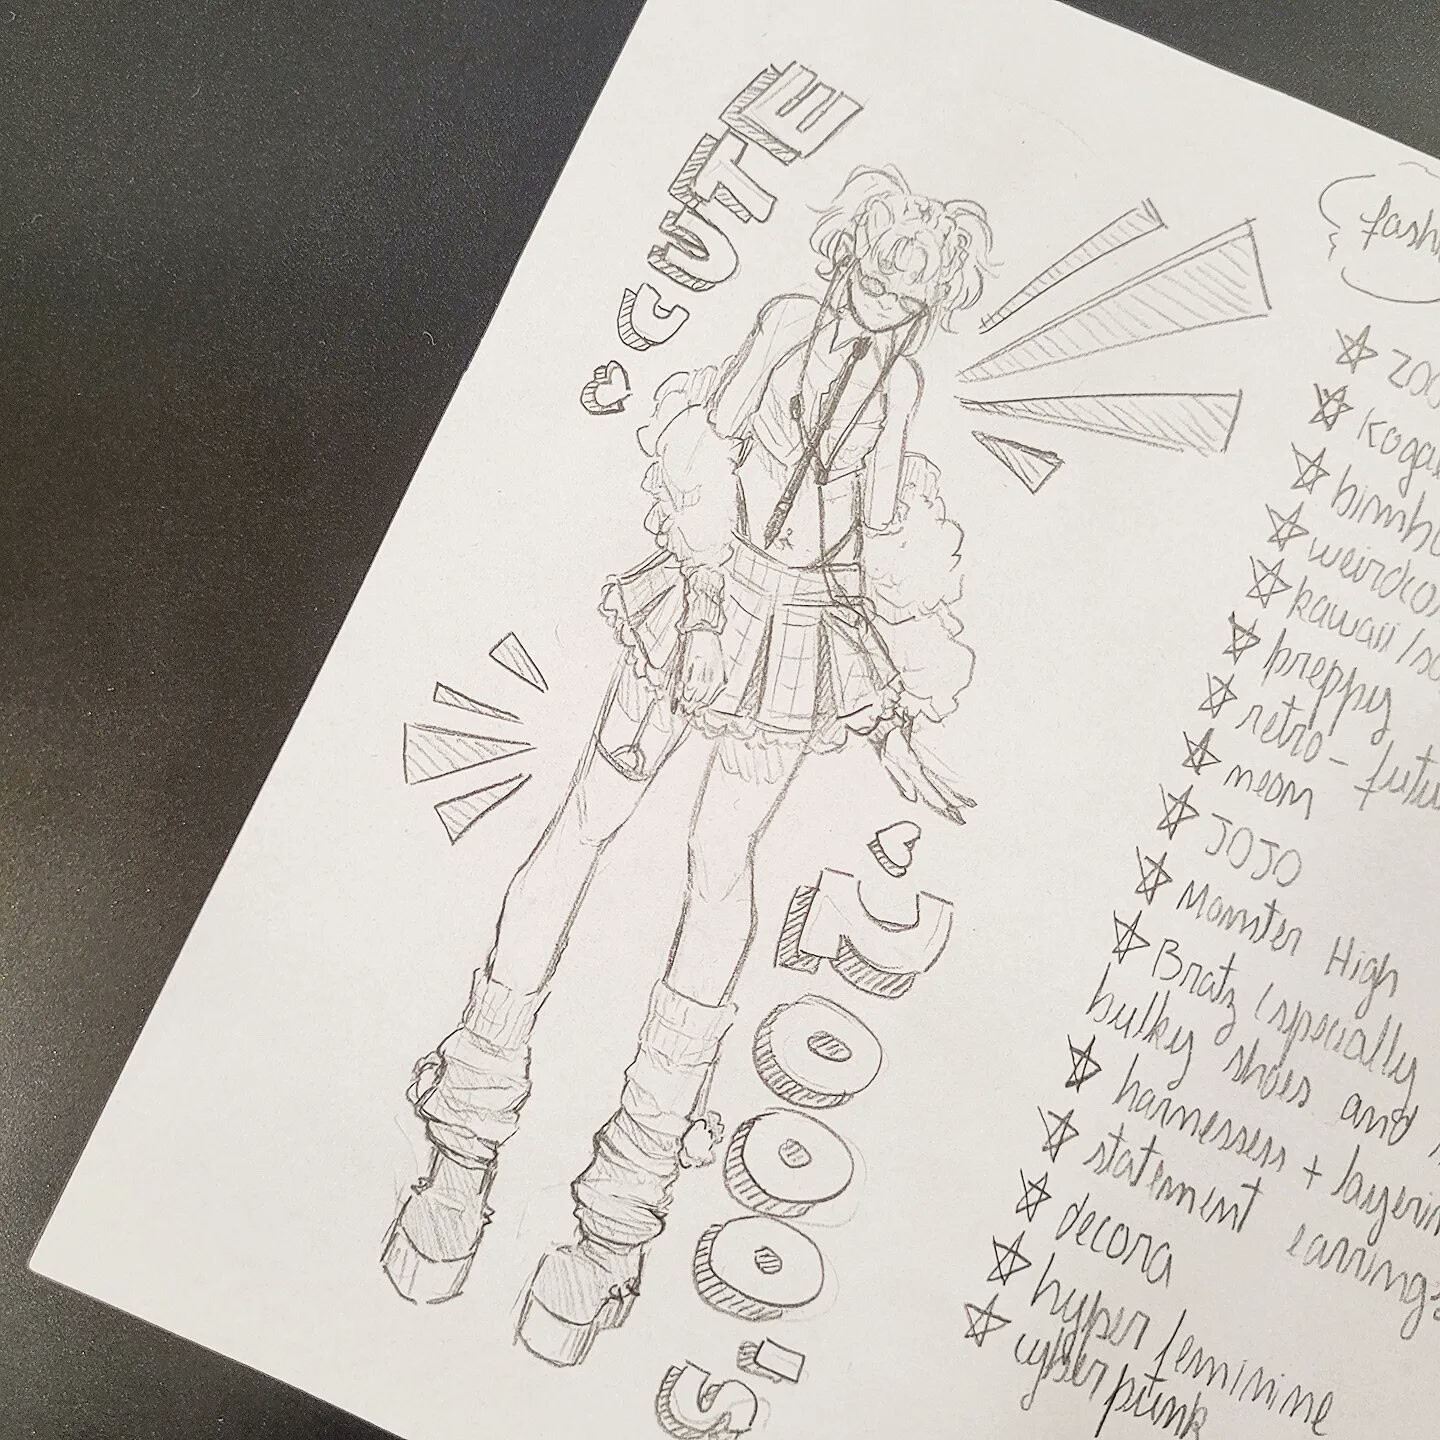 CUTE
2000's
fashi
Koga
bimbo
weirdco
kawaii /
preppy
retro-futu
neon
JOJO
Monster High
Bratz (specially
bulky shoes and
harnesses + layerin
statement earrings
decora
hyper feminine
cyber punk